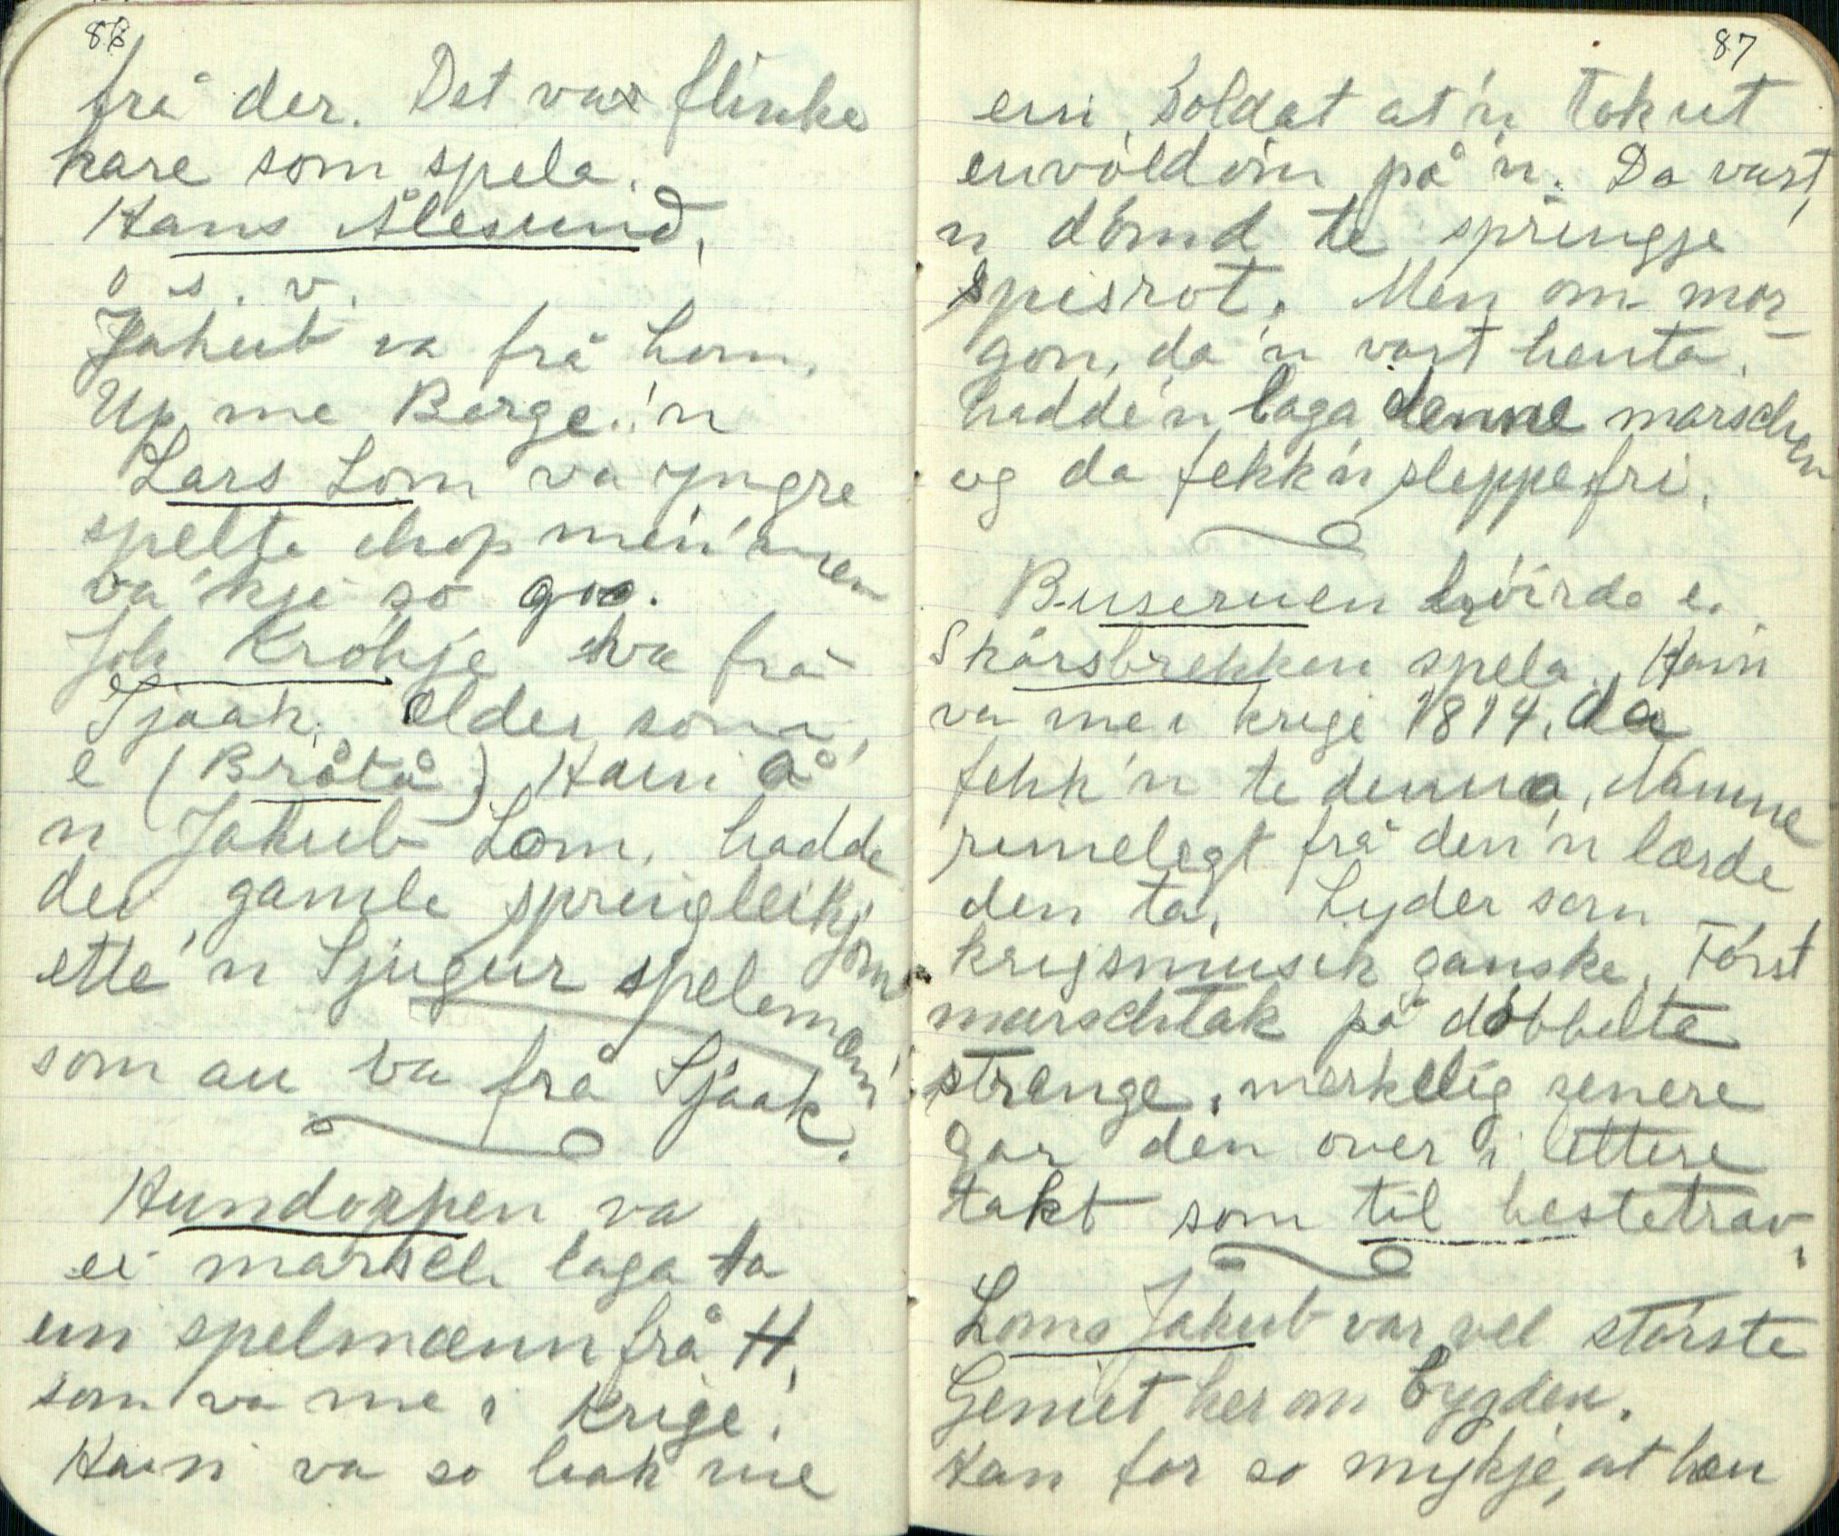 86
frå der. Det var flinke
kare som spela.
Hans Ålesund,
o s. v.
Jakub va frå Lom.
Up me Berge.'n
Lars Lom va yngre
spelte ihop me'n men
va'kje so goo.
Joh Krökje va frå
Sjaak. Elder som
e (Bråtå) Hain å
n Jakub Lom. hadde
dei gamle springleikjom
ette'n Sjugur spelemæn
som au va frå Sjaak.
Hundorpen va
ei marsch laga ta
ein spelmænn frå H,
som va me i krige.
Hain va so hak me
87
ein Soldat at'n tok ut
på'n. Da vart
n dömd te springje
spisrot. Men om mor-
gon, da'n vart henta,
hadde'n laga denne marschen
og da fekk'n sleppe fri.
Buseruen höirde e
Skårsbrekken spela. Hain
va me i krige 1814, da
fekk'n te denna, Namne
rimelegt frå den'n lærde
den ta. Lyder som
krigsmusik ganske. Först
marschtak på döbbelte
strenge, merkelig senere
gar den over i lettere
takt som til hestetrav.
Loms Jakub var vel störste
Geniet her om bygden.
Han for so mykje, at han